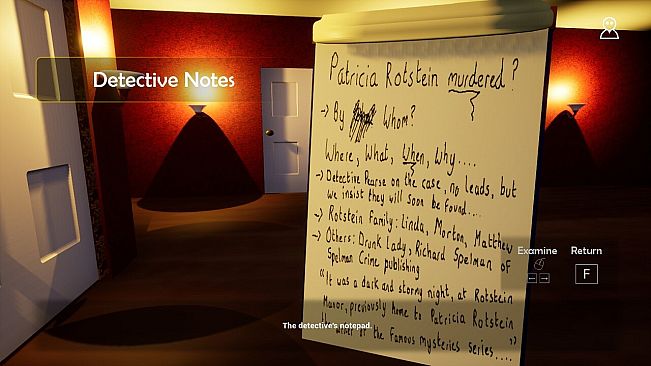 Detective Notes
Patricia Rotstein murdered?
→ By Whom?
Where, What, When, Why....
→ Detective Pearse on the case, no leads, but
we insist they will soon be found....
→ Rotstein Family: Linda, Morton, Matthew
→ Others: Drunk Lady, Richard Spelman of
Spelman Crime publishing
"It was a dark and stormy night, at Rotstein
Manor, previously home to Patricia Rotstein
writer of the Famous mysteries series...."
Examine Return
F
The detective's notepad.